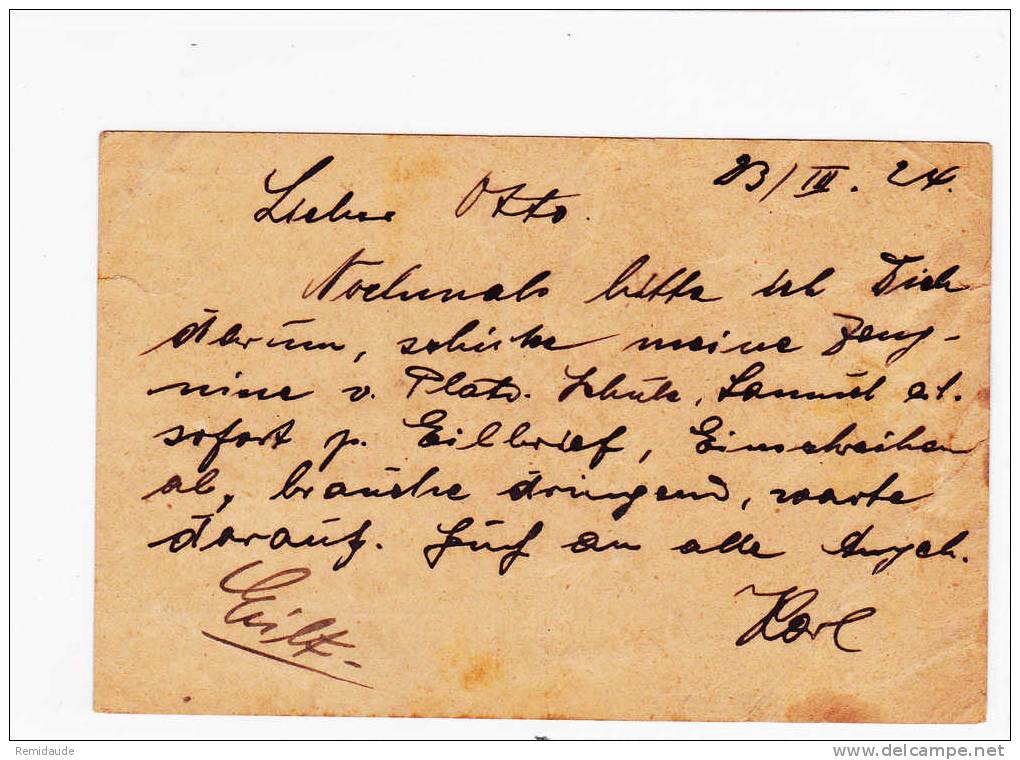 23/III. 24.
Lieber Otto.
Nochmals bitte ich Dich
darum, schicke meine Zeug-
nisse v. Plato. Schule, et.
sofort p. Eilbrief, Einschreiben
ab, brauche dringend, warte
darauf. Gruß an alle Angeh.
Karl
Eilt.
Remidaude
www.delcampe.net